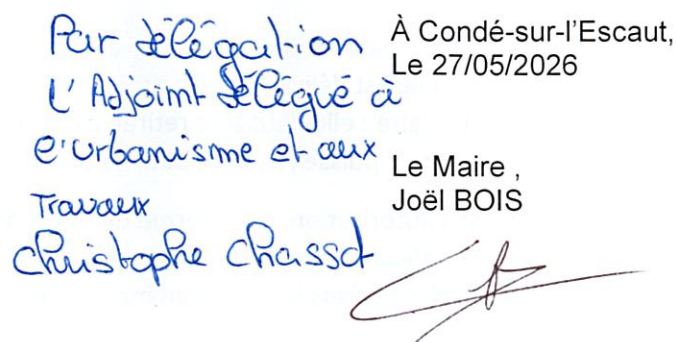 Par délégation
L'Adjoint délégué à
l'urbanisme et aux
Travaux
Christophe Chassot
À Condé-sur-l'Escaut,
Le 27/05/2026
Le Maire ,
Joël BOIS